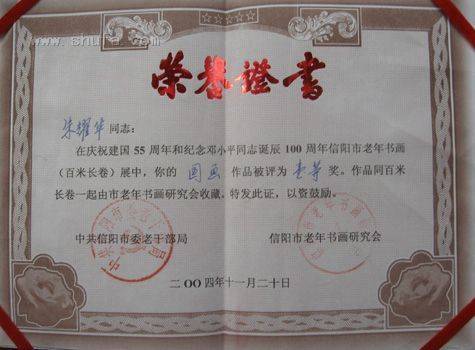 榮譽證書
朱耀华同志：
在庆祝建国55周年和纪念邓小平同志诞辰100周年信阳市老年书画
（百米长卷）展中，你的 国画 作品被评为 奖。作品同百米
长卷一起由市老年书画研究会收藏。特发此证，以资鼓励。
中共信阳市委老干部局 信阳市老年书画研究会
二OO四年十一月二十日